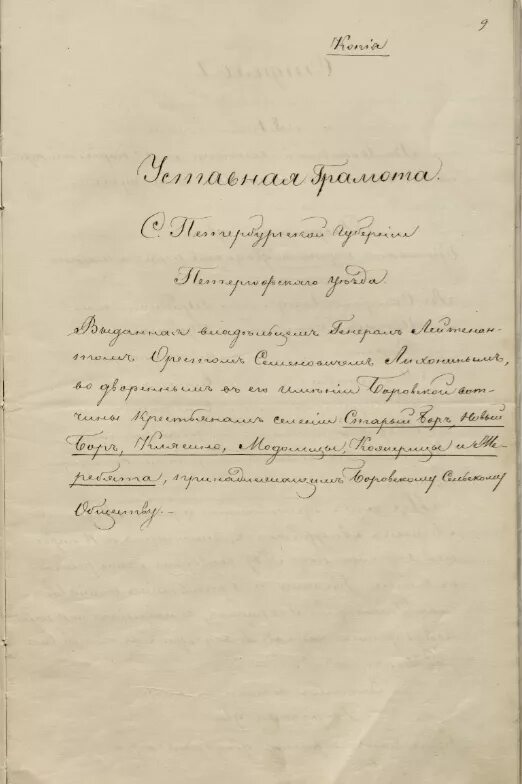 9
Копія
Уставная Грамота.
С. Петербургской Губерніи
Петергофскаго уѣзда.
Выданная владѣльцемъ Генералъ Лейтенан-
томъ Орестомъ Семеновичемъ Лихонинымъ,
во двореннымъ въ его имѣніи Боровской вот-
чины крестьянамъ селеній Старый Боръ, Новый
Боръ, Клясино, Модолицы, Кояерицы и Же-
ребята, принадлежащимъ Боровскому Сельскому
Обществу.-